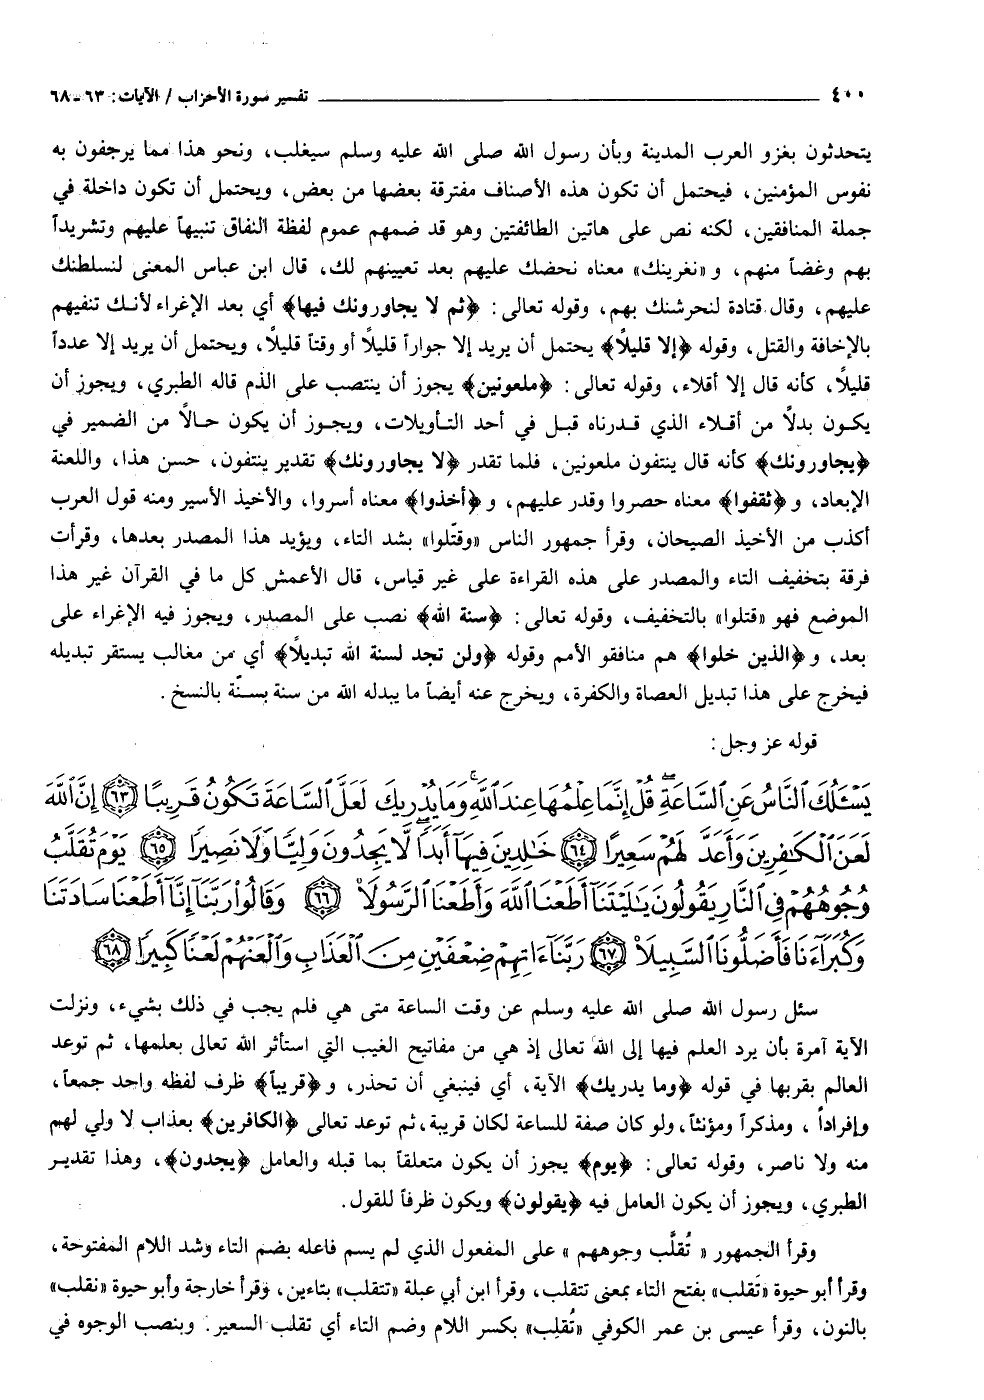 ٤٠٠ ــــــ تفسير سورة الأحزاب / الآيات: ٦٣ - ٦٨
يتحدثون بغزو العرب المدينة وبأن رسول الله صلى الله عليه وسلم سيغلب، ونحو هذا مما يرجفون به
نفوس المؤمنين، فيحتمل أن تكون هذه الأصناف مفترقة بعضها من بعض، ويحتمل أن تكون داخلة في
جملة المنافقين، لكنه نص على هاتين الطائفتين وهو قد ضمهم عموم لفظة النفاق تنبيهاً عليهم وتشريداً
بهم وغضاً منهم، و «نغرينك» معناه نحضك عليهم بعد تعيينهم لك، قال ابن عباس المعنى لنسلطنك
عليهم، وقال قتادة لنحرشنك بهم، وقوله تعالى: ﴿ثم لا يجاورونك فيها﴾ أي بعد الإغراء لأنك تنفيهم
بالإخافة والقتل، وقوله ﴿إلا قليلاً﴾ يحتمل أن يريد إلا جواراً قليلاً أو وقتاً قليلاً، ويحتمل أن يريد إلا عدداً
قليلاً، كأنه قال إلا أقلاء، وقوله تعالى: ﴿ملعونين﴾ يجوز أن ينتصب على الذم قاله الطبري، ويجوز أن
يكون بدلاً من أقلاء الذي قدرناه قبل في أحد التأويلات، ويجوز أن يكون حالاً من الضمير في
﴿يجاورونك﴾ كأنه قال ينتفون ملعونين، فلما تقدر ﴿لا يجاورونك﴾ تقدير ينتفون، حسن هذا، واللعنة
الإبعاد، و ﴿ثقفوا﴾ معناه حصروا وقدر عليهم، و ﴿أخذوا﴾ معناه أسروا، والأخيذ الأسير ومنه قول العرب
أكذب من الأخيذ الصيحان، وقرأ جمهور الناس «وقتّلوا» بشد التاء، ويؤيد هذا المصدر بعدها، وقرأت
فرقة بتخفيف التاء والمصدر على هذه القراءة على غير قياس، قال الأعمش كل ما في القرآن غير هذا
الموضع فهو «قتلوا» بالتخفيف، وقوله تعالى: ﴿سنة الله﴾ نصب على المصدر، ويجوز فيه الإغراء على
بعد، و ﴿الذين خلوا﴾ هم منافقو الأمم وقوله ﴿ولن تجد لسنة الله تبديلاً﴾ أي من مغالب يستقر تبديله
فيخرج على هذا تبديل العصاة والكفرة، ويخرج عنه أيضاً ما يبدله الله من سنة بسنّة بالنسخ.
قوله عز وجل:
يَسْـَٔلُكَ ٱلنَّاسُ عَنِ ٱلسَّاعَةِ ۖ قُلْ إِنَّمَا عِلْمُهَا عِندَ ٱللَّهِ ۚ وَمَا يُدْرِيكَ لَعَلَّ ٱلسَّاعَةَ تَكُونُ قَرِيبًا ۝٦٣ إِنَّ ٱللَّهَ
لَعَنَ ٱلْكَٰفِرِينَ وَأَعَدَّ لَهُمْ سَعِيرًا ۝٦٤ خَٰلِدِينَ فِيهَآ أَبَدًا ۖ لَّا يَجِدُونَ وَلِيًّا وَلَا نَصِيرًا ۝٦٥ يَوْمَ تُقَلَّبُ
وُجُوهُهُمْ فِى ٱلنَّارِ يَقُولُونَ يَٰلَيْتَنَآ أَطَعْنَا ٱللَّهَ وَأَطَعْنَا ٱلرَّسُولَا۠ ۝٦٦ وَقَالُوا۟ رَبَّنَآ إِنَّآ أَطَعْنَا سَادَتَنَا
وَكُبَرَآءَنَا فَأَضَلُّونَا ٱلسَّبِيلَا۠ ۝٦٧ رَبَّنَآ ءَاتِهِمْ ضِعْفَيْنِ مِنَ ٱلْعَذَابِ وَٱلْعَنْهُمْ لَعْنًا كَبِيرًا ۝٦٨
سئل رسول الله صلى الله عليه وسلم عن وقت الساعة متى هي فلم يجب في ذلك بشيء، ونزلت
الآية آمرة بأن يرد العلم فيها إلى الله تعالى إذ هي من مفاتيح الغيب التي استأثر الله تعالى بعلمها، ثم توعد
العالم بقربها في قوله ﴿وما يدريك﴾ الآية، أي فينبغي أن تحذر، و ﴿قريباً﴾ ظرف لفظه واحد جمعاً،
وإفراداً، ومذكراً ومؤنثاً، ولو كان صفة للساعة لكان قريبة، ثم توعد تعالى ﴿الكافرين﴾ بعذاب لا ولي لهم
منه ولا ناصر، وقوله تعالى: ﴿يوم﴾ يجوز أن يكون متعلقاً بما قبله والعامل ﴿يجدون﴾، وهذا تقدير
الطبري، ويجوز أن يكون العامل فيه ﴿يقولون﴾ ويكون ظرفاً للقول.
وقرأ الجمهور « تُقلَّب وجوههم » على المفعول الذي لم يسم فاعله بضم التاء وشد اللام المفتوحة،
وقرأ أبو حيوة «تَقلب» بفتح التاء بمعنى تتقلب، وقرأ ابن أبي عبلة «تتقلب» بتاءين، وقرأ خارجة وأبو حيوة «نقلب»
بالنون، وقرأ عيسى بن عمر الكوفي «تُقلِب» بكسر اللام وضم التاء أي تقلب السعير. وبنصب الوجوه في